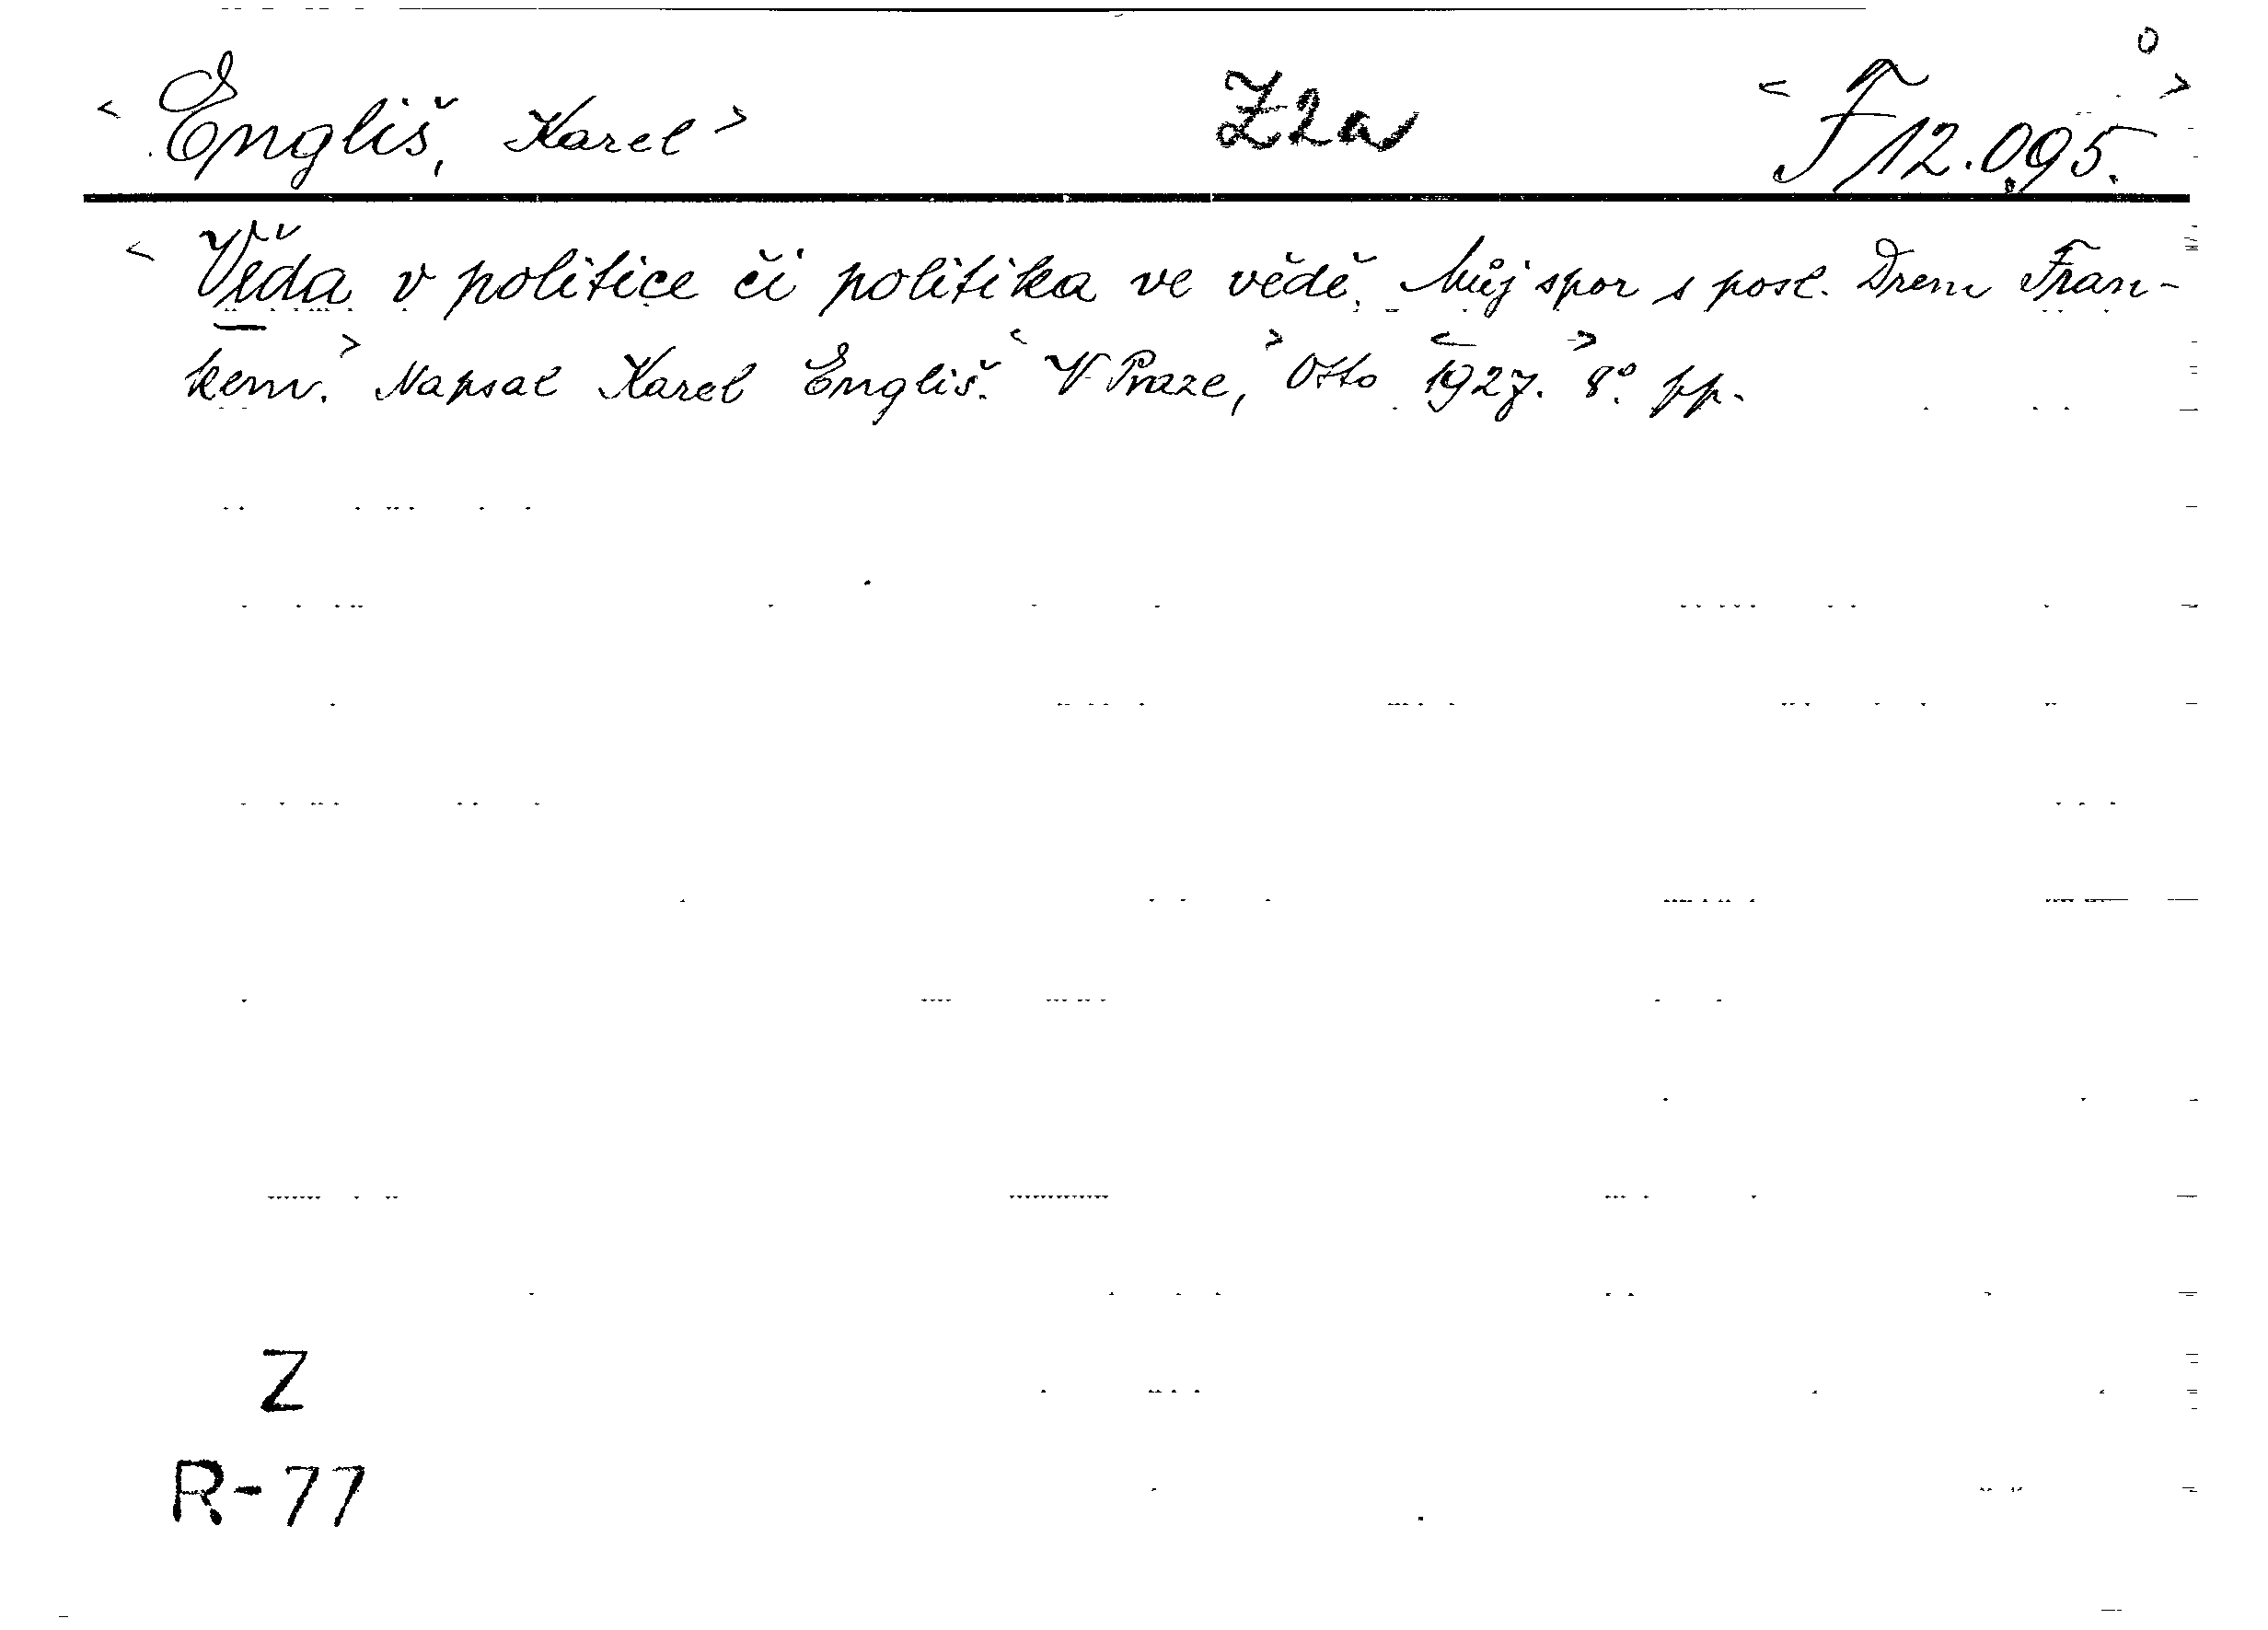 < Engliš, Karel > Z2a < F 12.095. >
< Věda v politice či politika ve vědě. Můj spor s posl. Drem Fran-
kem. > Napsal Karel Engliš. < V Praze, > Otto < 1927. > 8°. pp.
Z
R-77